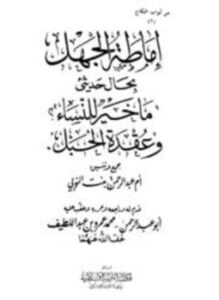 من أبواب النكاح
(٢)
إماطة الجهل
بحال حديثي
«ما خير للنساء؟»
وعقدة الحبل.
جمع وتأليف
أم عبد الرحمن بنت النوبي
قدم له وراجعه وحرره وعلق عليه
أبو عبد الرحمن محمد عمرو بن عبد اللطيف
عفا الله عنهما